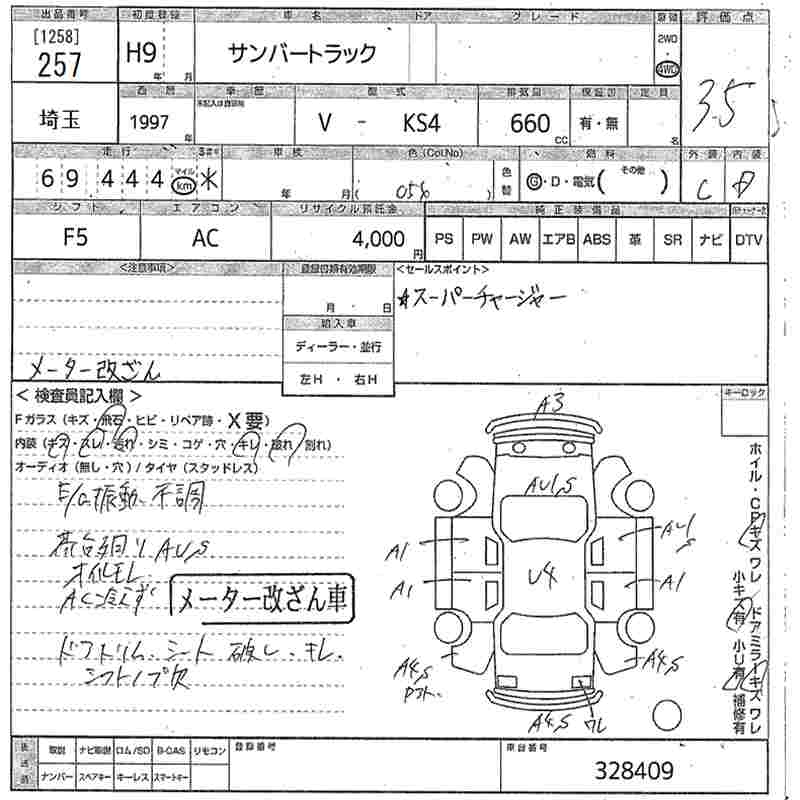 出品番号 初度登録 車名 ドア グレード 駆動 評価点
[1258]
257 H9 年 月 サンバートラック 2WD ・ 4WD 3.5
西暦 車歴 型式 排気量 保証書 定員
埼玉 1997 年 未記入は自家用 V - KS4 660 CC 有・無 名
走行 車検 色(Col.No) 燃料 外装 内装
69 444 マイル km * 年 月 ( 056 ) 色替 G・D・電気( その他 ) C D
シフト エアコン リサイクル預託金 純正装備品
F5 AC 4,000 円 PS PW AW エアB ABS 革 SR ナビ DTV
<注意事項> 登録書類有効期限 <セールスポイント>
月 日 ☆スーパーチャージャー
輸入車
ディーラー・並行
メーター改ざん 左H ・ 右H
<検査員記入欄> キーロック
Fガラス(キズ・飛石・ヒビ・リペア跡・X要)
内装(キズ・スレ・汚れ・シミ・コゲ・穴・キレ・破れ・割れ)
オーディオ(無し・穴)/タイヤ(スタッドレス)
E/G振動 不調
荷台廻りAUS
オイルモレ
AC冷えず メーター改ざん車
ドアトリム、シート破レ、キレ
シフトノブ欠
A3
AU1,S
A1 AU1 S
U4
A1 A1
A4,S A4,S
A4,S ワレ
ホイル・CPキズ ワレ / ドアミラーキズ ワレ
小キズ有 小U有 補修有
後送品 取説 ナビ取説 ロム/SD B-CAS リモコン 登録番号 車台番号
ナンバー スペアキー キーレス スマートキー 328409